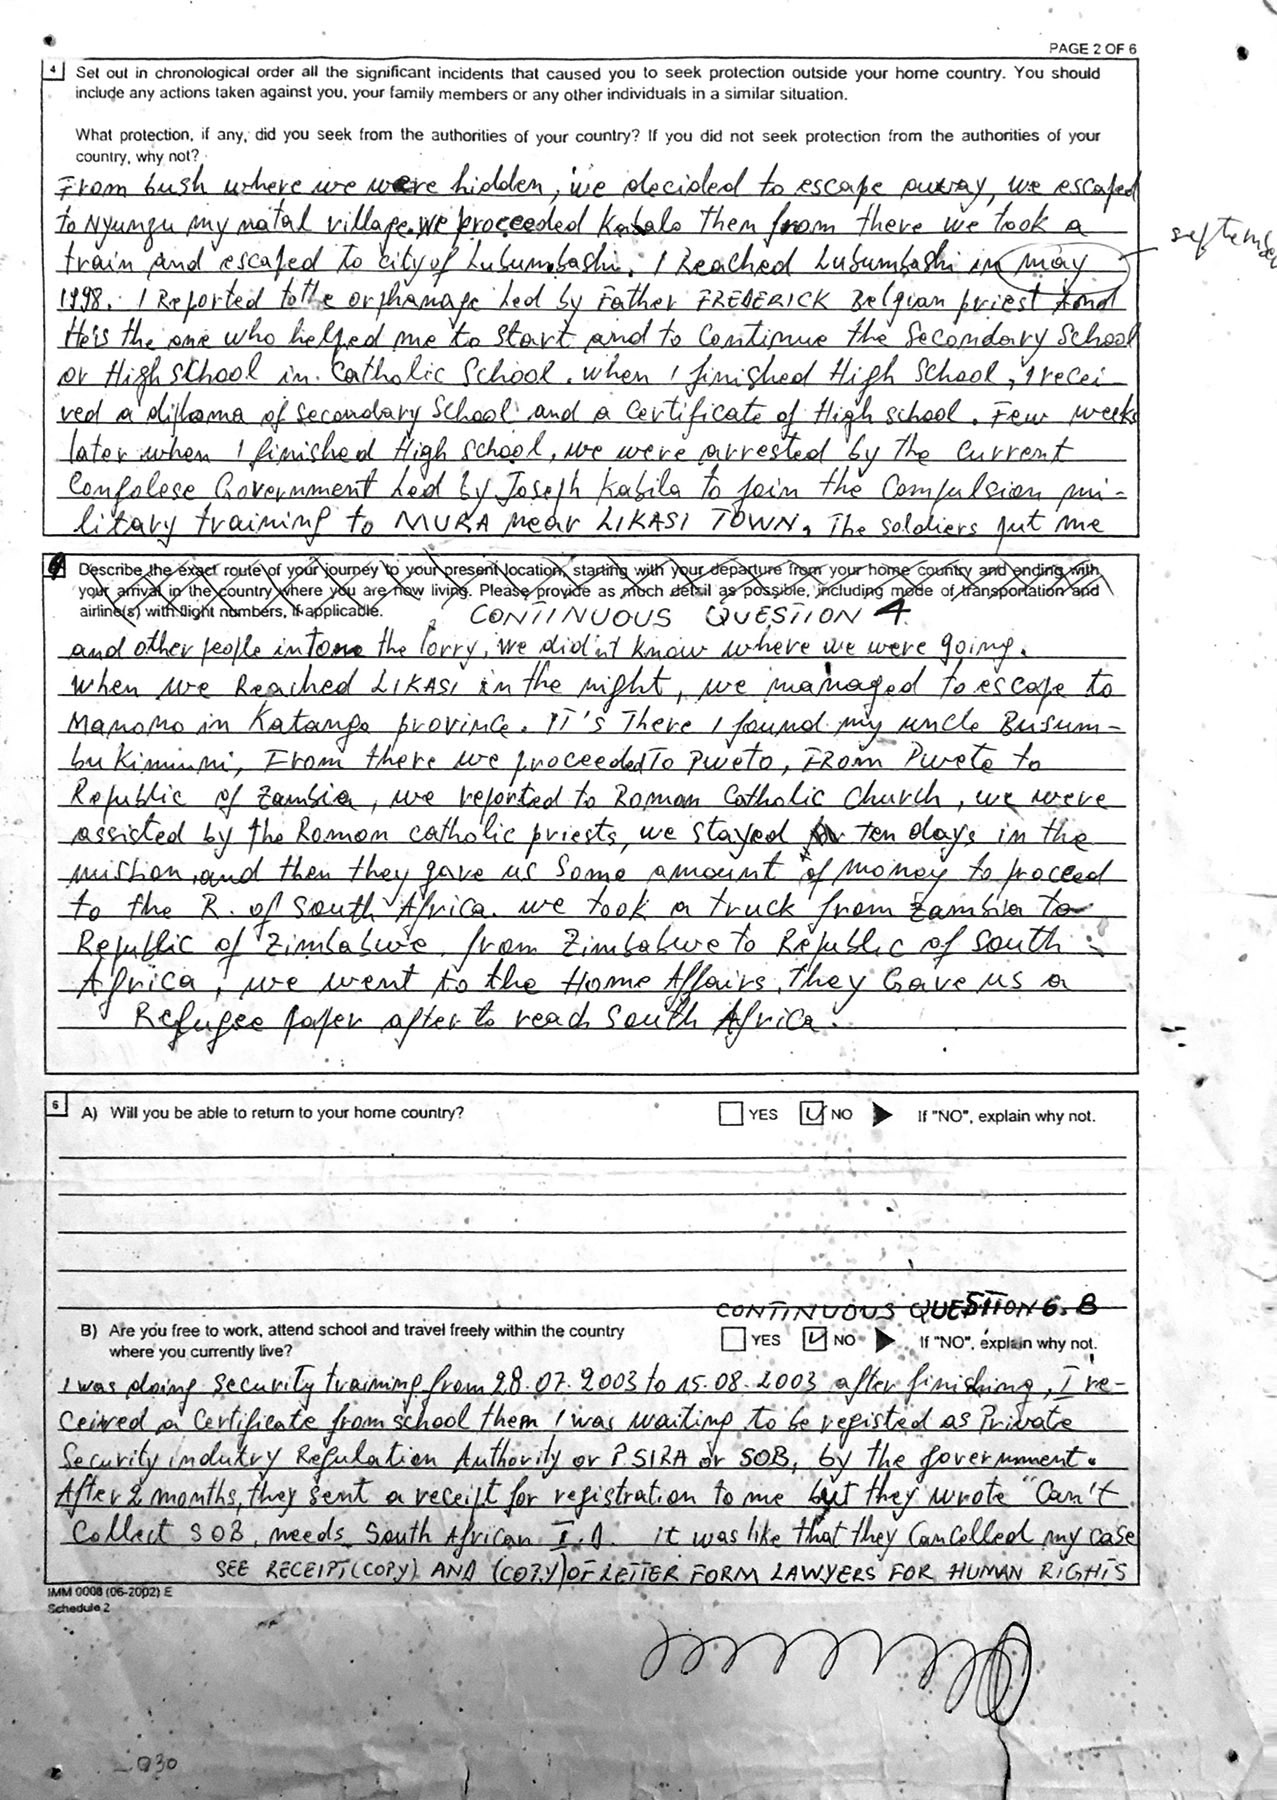 PAGE 2 OF 6
4 Set out in chronological order all the significant incidents that caused you to seek protection outside your home country. You should
include any actions taken against you, your family members or any other individuals in a similar situation.
What protection, if any, did you seek from the authorities of your country? If you did not seek protection from the authorities of your
country, why not?
From bush where we were hidden, we decided to escape away, we escaped
to Nyungu my natal village. We proceeded Kabalo them from there we took a
train and escaped to city of Lubumbashi. I Reached Lubumbashi in may
september
1998. I Reported to the orphanage Led by Father FREDERICK Belgian priest And
He is the one who helped me to start and to continue the Secondary School
or High school in Catholic School. when I finished High School, I recei-
ved a diploma of secondary School and a certificate of High school. Few weeks
later when I finished High School, we were arrested by the current
Congolese Government Led by Joseph Kabila to join the Compulsion mi-
litary training to MURA near LIKASI TOWN, The soldiers put me
Describe the exact route of your journey to your present location, starting with your departure from your home country and ending with
your arrival in the country where you are now living. Please provide as much detail as possible, including mode of transportation and
airline(s) with flight numbers, if applicable.
CONTINUOUS QUESTION 4.
and other people in the lorry, we didn't know where we were going.
when we Reached LIKASI in the night, we managed to escape to
Manono in Katanga province. IT'S There I found my uncle Busum-
bu Kimunni, From there we proceeded To Pweto, FROM Pweto to
Republic of Zambia, we reported to Roman Catholic church, we were
assisted by the Roman catholic priests, we stayed ten days in the
mission, and then they gave us some amount of money to proceed
to the R. of South Africa. we took a truck from Zambia to
Republic of Zimbabwe, from Zimbabwe to Republic of South
Africa, we went to the Home Affairs. They Gave us a
Refugee paper after to reach South Africa.
6 A) Will you be able to return to your home country? YES NO If "NO", explain why not.
CONTINUOUS QUESTION 6. B
B) Are you free to work, attend school and travel freely within the country
where you currently live? YES NO If "NO", explain why not.
I was doing security training from 28.07.2003 to 15.08.2003 after finishing, I re-
ceived a Certificate from school them I was waiting to be registed as Private
Security indutry Regulation Authority or P.SIRA or SOB, by the government.
After 2 months, they sent a receipt for registration to me but they wrote "Can't
Collect SOB, needs South African I.D. it was like that they Cancelled my case
SEE RECEIPT (COPY) AND (COPY) OF LETTER FORM LAWYERS FOR HUMAN RIGHTS
IMM 0008 (06-2002) E
Schedule 2
030